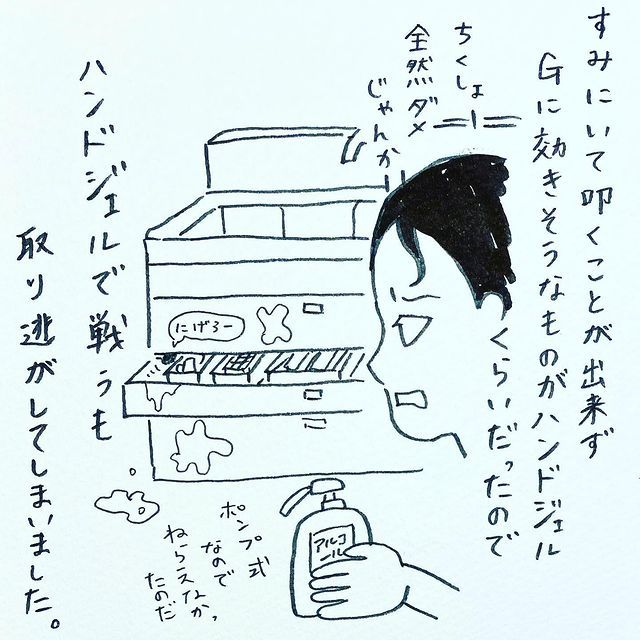 すみにいて叩くことが出来ず
Gに効きそうなものがハンドジェル
くらいだったので
ちくしょー
全然ダメ
じゃんかー
にげろー
アルコ
ール
ポンプ式
なので
ねらえなかっ
たのだ
ハンドジェルで戦うも
取り逃がしてしまいました。